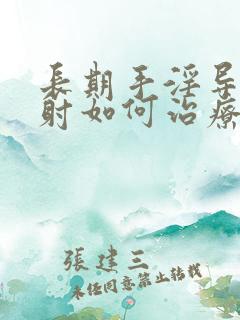 長期手淫导
射如何治療
張建三
未经同意禁止转载